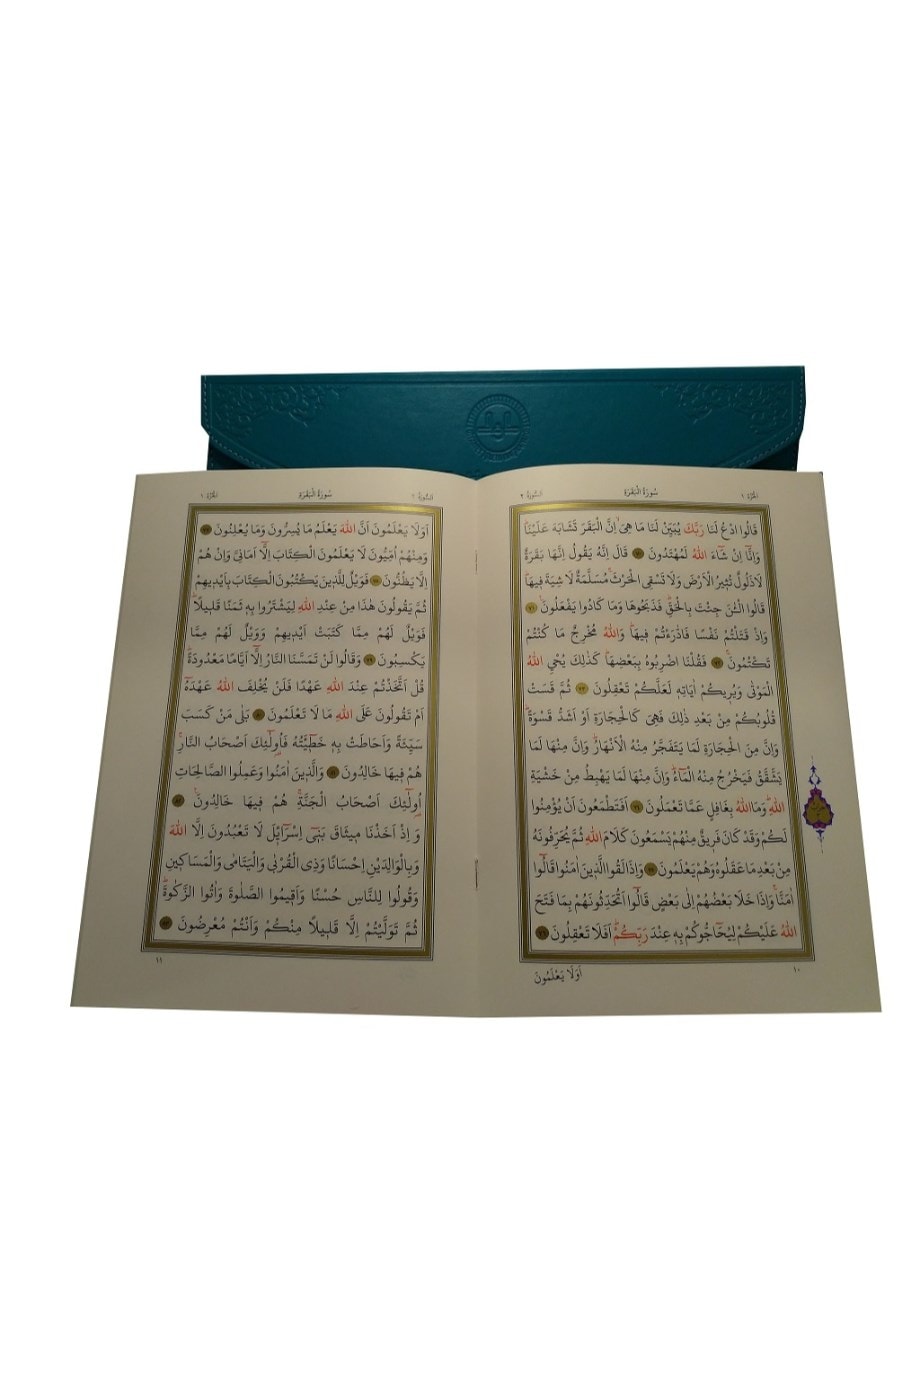 الجزء ١ سورة البقرة السورة ٢
قَالُوا ادْعُ لَنَا رَبَّكَ يُبَيِّنْ لَنَا مَا هِيَ اِنَّ الْبَقَرَ تَشَابَهَ عَلَيْنَا
وَاِنَّٓا اِنْ شَٓاءَ اللّٰهُ لَمُهْتَدُونَ ٧٠ قَالَ اِنَّهُ يَقُولُ اِنَّهَا بَقَرَةٌ
لَا ذَلُولٌ تُثِيرُ الْاَرْضَ وَلَا تَسْقِي الْحَرْثَ مُسَلَّمَةٌ لَا شِيَةَ فِيهَا
قَالُوا الْـٰٔنَ جِئْتَ بِالْحَقِّ فَذَبَحُوهَا وَمَا كَادُوا يَفْعَلُونَ ٧١
وَاِذْ قَتَلْتُمْ نَفْسًا فَادّٰرَءْتُمْ فِيهَا وَاللّٰهُ مُخْرِجٌ مَا كُنْتُمْ
تَكْتُمُونَ ٧٢ فَقُلْنَا اضْرِبُوهُ بِبَعْضِهَا كَذٰلِكَ يُحْيِ اللّٰهُ
الْمَوْتٰى وَيُرِيكُمْ اٰيَاتِهِ لَعَلَّكُمْ تَعْقِلُونَ ٧٣ ثُمَّ قَسَتْ
قُلُوبُكُمْ مِنْ بَعْدِ ذٰلِكَ فَهِيَ كَالْحِجَارَةِ اَوْ اَشَدُّ قَسْوَةً
وَاِنَّ مِنَ الْحِجَارَةِ لَمَا يَتَفَجَّرُ مِنْهُ الْاَنْهَارُ وَاِنَّ مِنْهَا لَمَا
يَشَّقَّقُ فَيَخْرُجُ مِنْهُ الْمَٓاءُ وَاِنَّ مِنْهَا لَمَا يَهْبِطُ مِنْ خَشْيَةِ
اللّٰهِ وَمَا اللّٰهُ بِغَافِلٍ عَمَّا تَعْمَلُونَ ٧٤ اَفَتَطْمَعُونَ اَنْ يُؤْمِنُوا
لَكُمْ وَقَدْ كَانَ فَرِيقٌ مِنْهُمْ يَسْمَعُونَ كَلَامَ اللّٰهِ ثُمَّ يُحَرِّفُونَهُ
مِنْ بَعْدِ مَا عَقَلُوهُ وَهُمْ يَعْلَمُونَ ٧٥ وَاِذَا لَقُوا الَّذِينَ اٰمَنُوا قَالُٓوا
اٰمَنَّا وَاِذَا خَلَا بَعْضُهُمْ اِلٰى بَعْضٍ قَالُٓوا اَتُحَدِّثُونَهُمْ بِمَا فَتَحَ
اللّٰهُ عَلَيْكُمْ لِيُحَٓاجُّوكُمْ بِهِ عِنْدَ رَبِّكُمْ اَفَلَا تَعْقِلُونَ ٧٦
١٠
اَوَلَا يَعْلَمُونَ
الجزء ١ سورة البقرة السورة ٢
اَوَلَا يَعْلَمُونَ اَنَّ اللّٰهَ يَعْلَمُ مَا يُسِرُّونَ وَمَا يُعْلِنُونَ ٧٧
وَمِنْهُمْ اُمِّيُّونَ لَا يَعْلَمُونَ الْكِتَابَ اِلَّٓا اَمَانِيَّ وَاِنْ هُمْ
اِلَّا يَظُنُّونَ ٧٨ فَوَيْلٌ لِلَّذِينَ يَكْتُبُونَ الْكِتَابَ بِاَيْدِيهِمْ
ثُمَّ يَقُولُونَ هٰذَا مِنْ عِنْدِ اللّٰهِ لِيَشْتَرُوا بِهِ ثَمَنًا قَلِيلًا
فَوَيْلٌ لَهُمْ مِمَّا كَتَبَتْ اَيْدِيهِمْ وَوَيْلٌ لَهُمْ مِمَّا
يَكْسِبُونَ ٧٩ وَقَالُوا لَنْ تَمَسَّنَا النَّارُ اِلَّٓا اَيَّامًا مَعْدُودَةً
قُلْ اَتَّخَذْتُمْ عِنْدَ اللّٰهِ عَهْدًا فَلَنْ يُخْلِفَ اللّٰهُ عَهْدَهُٓ
اَمْ تَقُولُونَ عَلَى اللّٰهِ مَا لَا تَعْلَمُونَ ٨٠ بَلٰى مَنْ كَسَبَ
سَيِّئَةً وَاَحَاطَتْ بِهِ خَطِٓيـَٔتُهُ فَاُو۬لٰٓئِكَ اَصْحَابُ النَّارِ
هُمْ فِيهَا خَالِدُونَ ٨١ وَالَّذِينَ اٰمَنُوا وَعَمِلُوا الصَّالِحَاتِ
اُو۬لٰٓئِكَ اَصْحَابُ الْجَنَّةِ هُمْ فِيهَا خَالِدُونَ ٨٢
وَاِذْ اَخَذْنَا مِيثَاقَ بَنِٓي اِسْرَٓائِلَ لَا تَعْبُدُونَ اِلَّا اللّٰهَ
وَبِالْوَالِدَيْنِ اِحْسَانًا وَذِي الْقُرْبٰى وَالْيَتَامٰى وَالْمَسَاكِينِ
وَقُولُوا لِلنَّاسِ حُسْنًا وَاَقِيمُوا الصَّلٰوةَ وَاٰتُوا الزَّكٰوةَ
ثُمَّ تَوَلَّيْتُمْ اِلَّا قَلِيلًا مِنْكُمْ وَاَنْتُمْ مُعْرِضُونَ ٨٣
١١